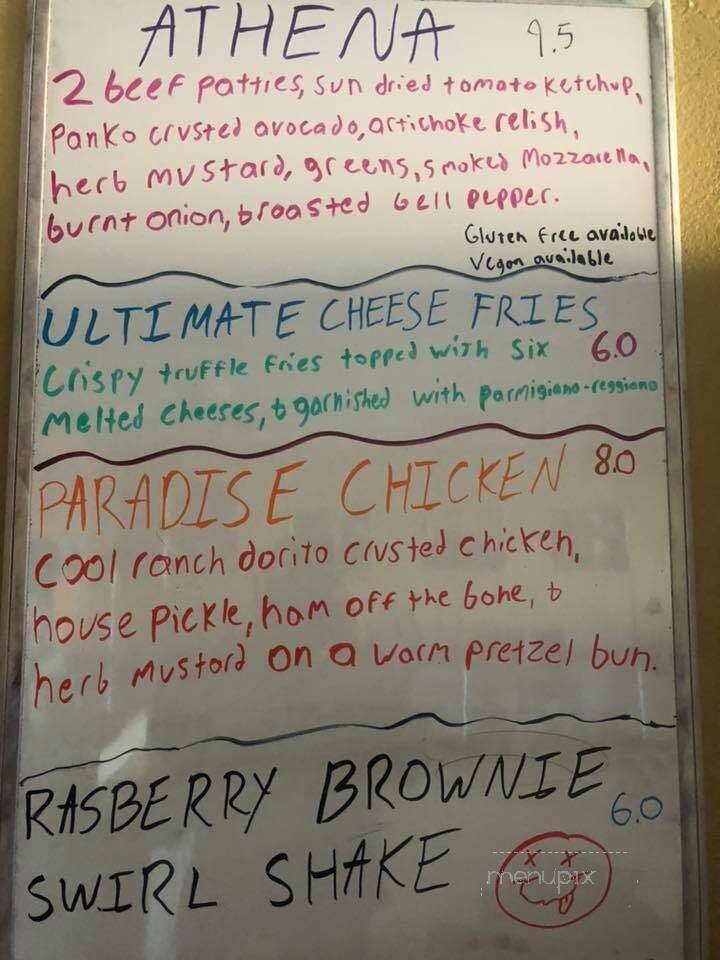 ATHENA 9.5
2 beef patties, sun dried tomato ketchup,
Panko crusted avocado, artichoke relish,
herb mustard, greens, smoked Mozzarella,
burnt onion, broasted bell pepper.
Gluten free available
Vegan available
ULTIMATE CHEESE FRIES
Crispy truffle fries topped with six 6.0
Melted cheeses, & garnished with parmigiano-reggiano
PARADISE CHICKEN 8.0
Cool ranch dorito crusted chicken,
house pickle, ham off the bone, &
herb mustard on a warm pretzel bun.
RASBERRY BROWNIE 6.0
SWIRL SHAKE
menupix